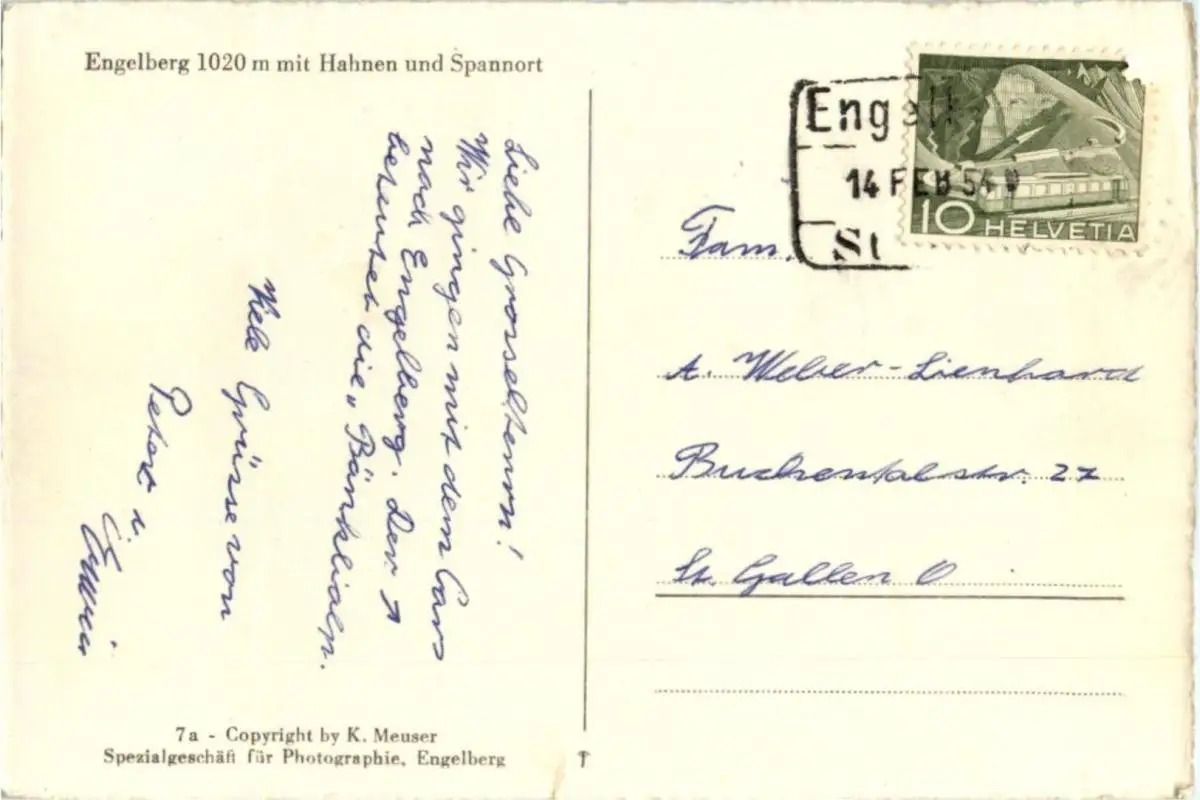 Engelberg 1020 m mit Hahnen und Spannort
Liebe Grosseltern!
Wir gingen mit dem Cars
nach Engelberg. Der ↗
bedeutet die „Bänklialp.
Viele Grüsse von
Peter u.
Erwin
7a - Copyright by K. Meuser
Spezialgeschäft für Photographie, Engelberg
Engelb
14 FEB 54
St
10 HELVETIA
Fam.
A. Weber-Lienhard
Buchentalstr. 27
St. Gallen O